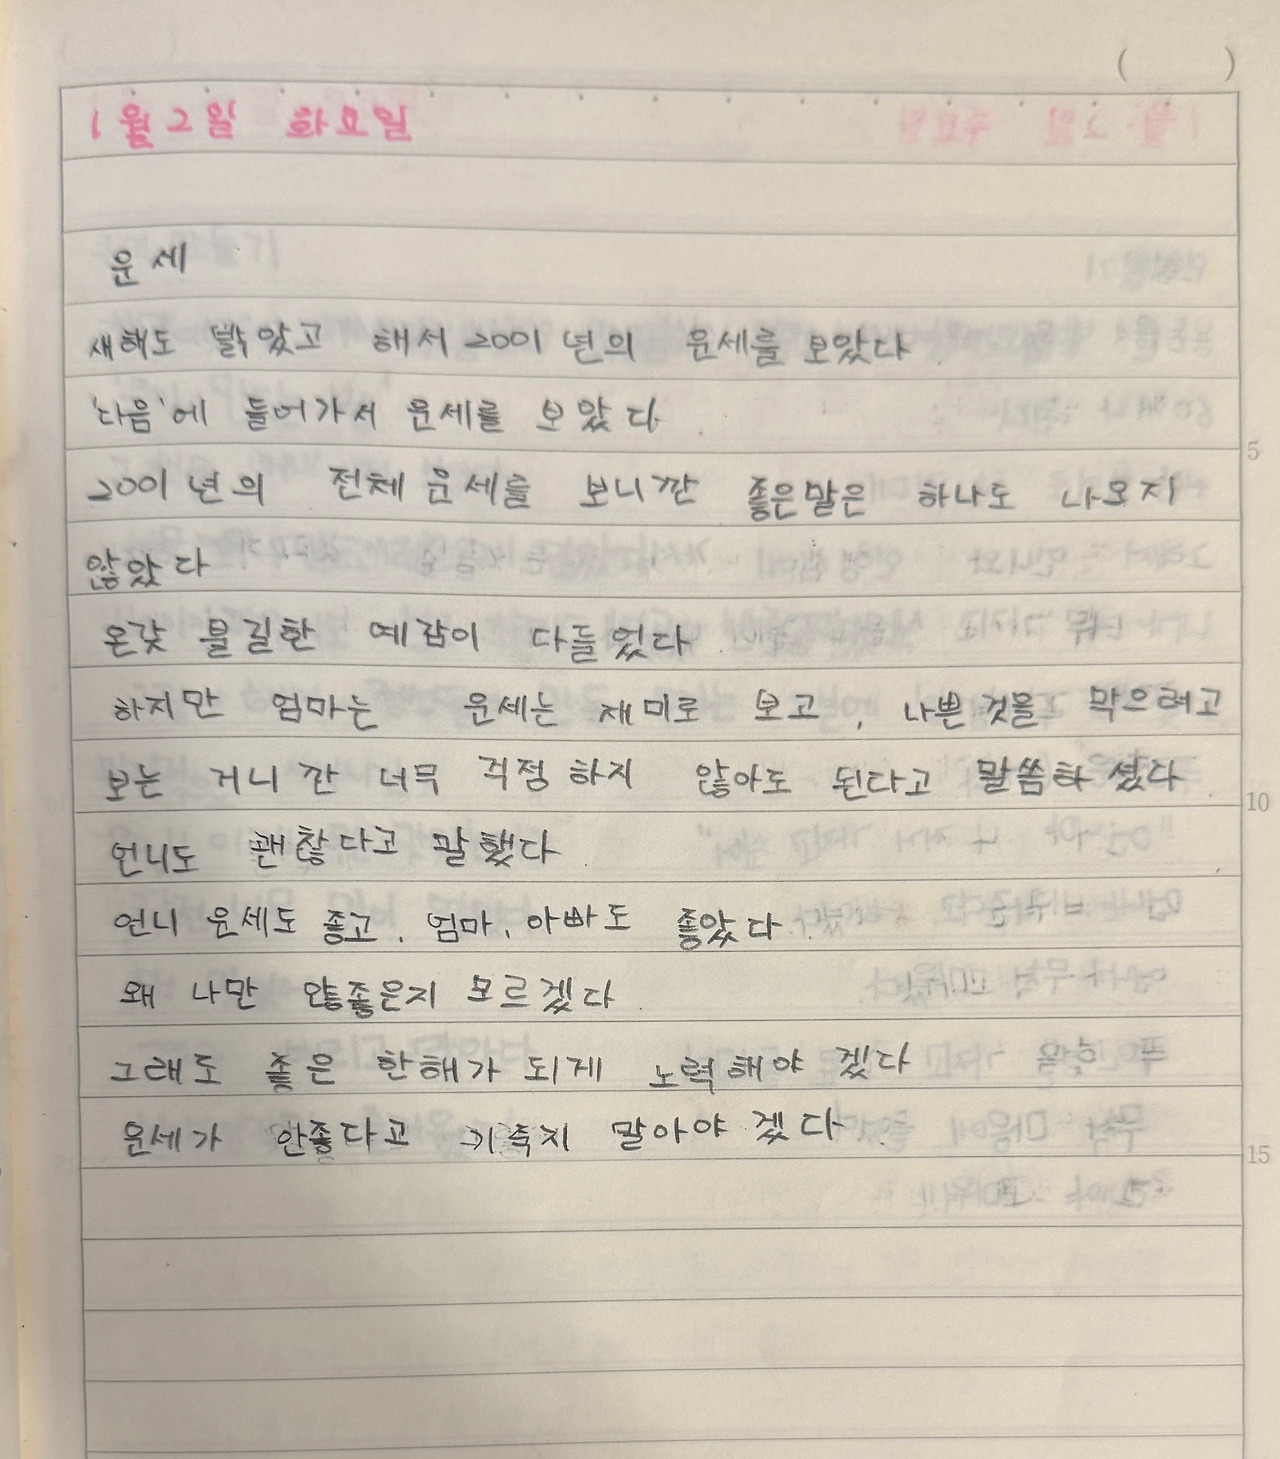 (        )
1월 2일 화요일
운세
새해도 밝았고 해서 2001년의 운세를 보았다.
'다음'에 들어가서 운세를 보았다.
2001년의 전체 운세를 보니깐 좋은말은 하나도 나오지
5
않았다
온갖 불길한 예감이 다들었다.
하지만 엄마는 운세는 재미로 보고, 나쁜것을 막으려고
보는 거니깐 너무 걱정하지 않아도 된다고 말씀하셨다.
10
언니도 괜찮다고 말했다.
언니 운세도 좋고, 엄마, 아빠도 좋았다.
왜 나만 않좋은지 모르겠다.
그래도 좋은 한해가 되게 노력해야 겠다
운세가 안좋다고 기죽지 말아야 겠다.
15